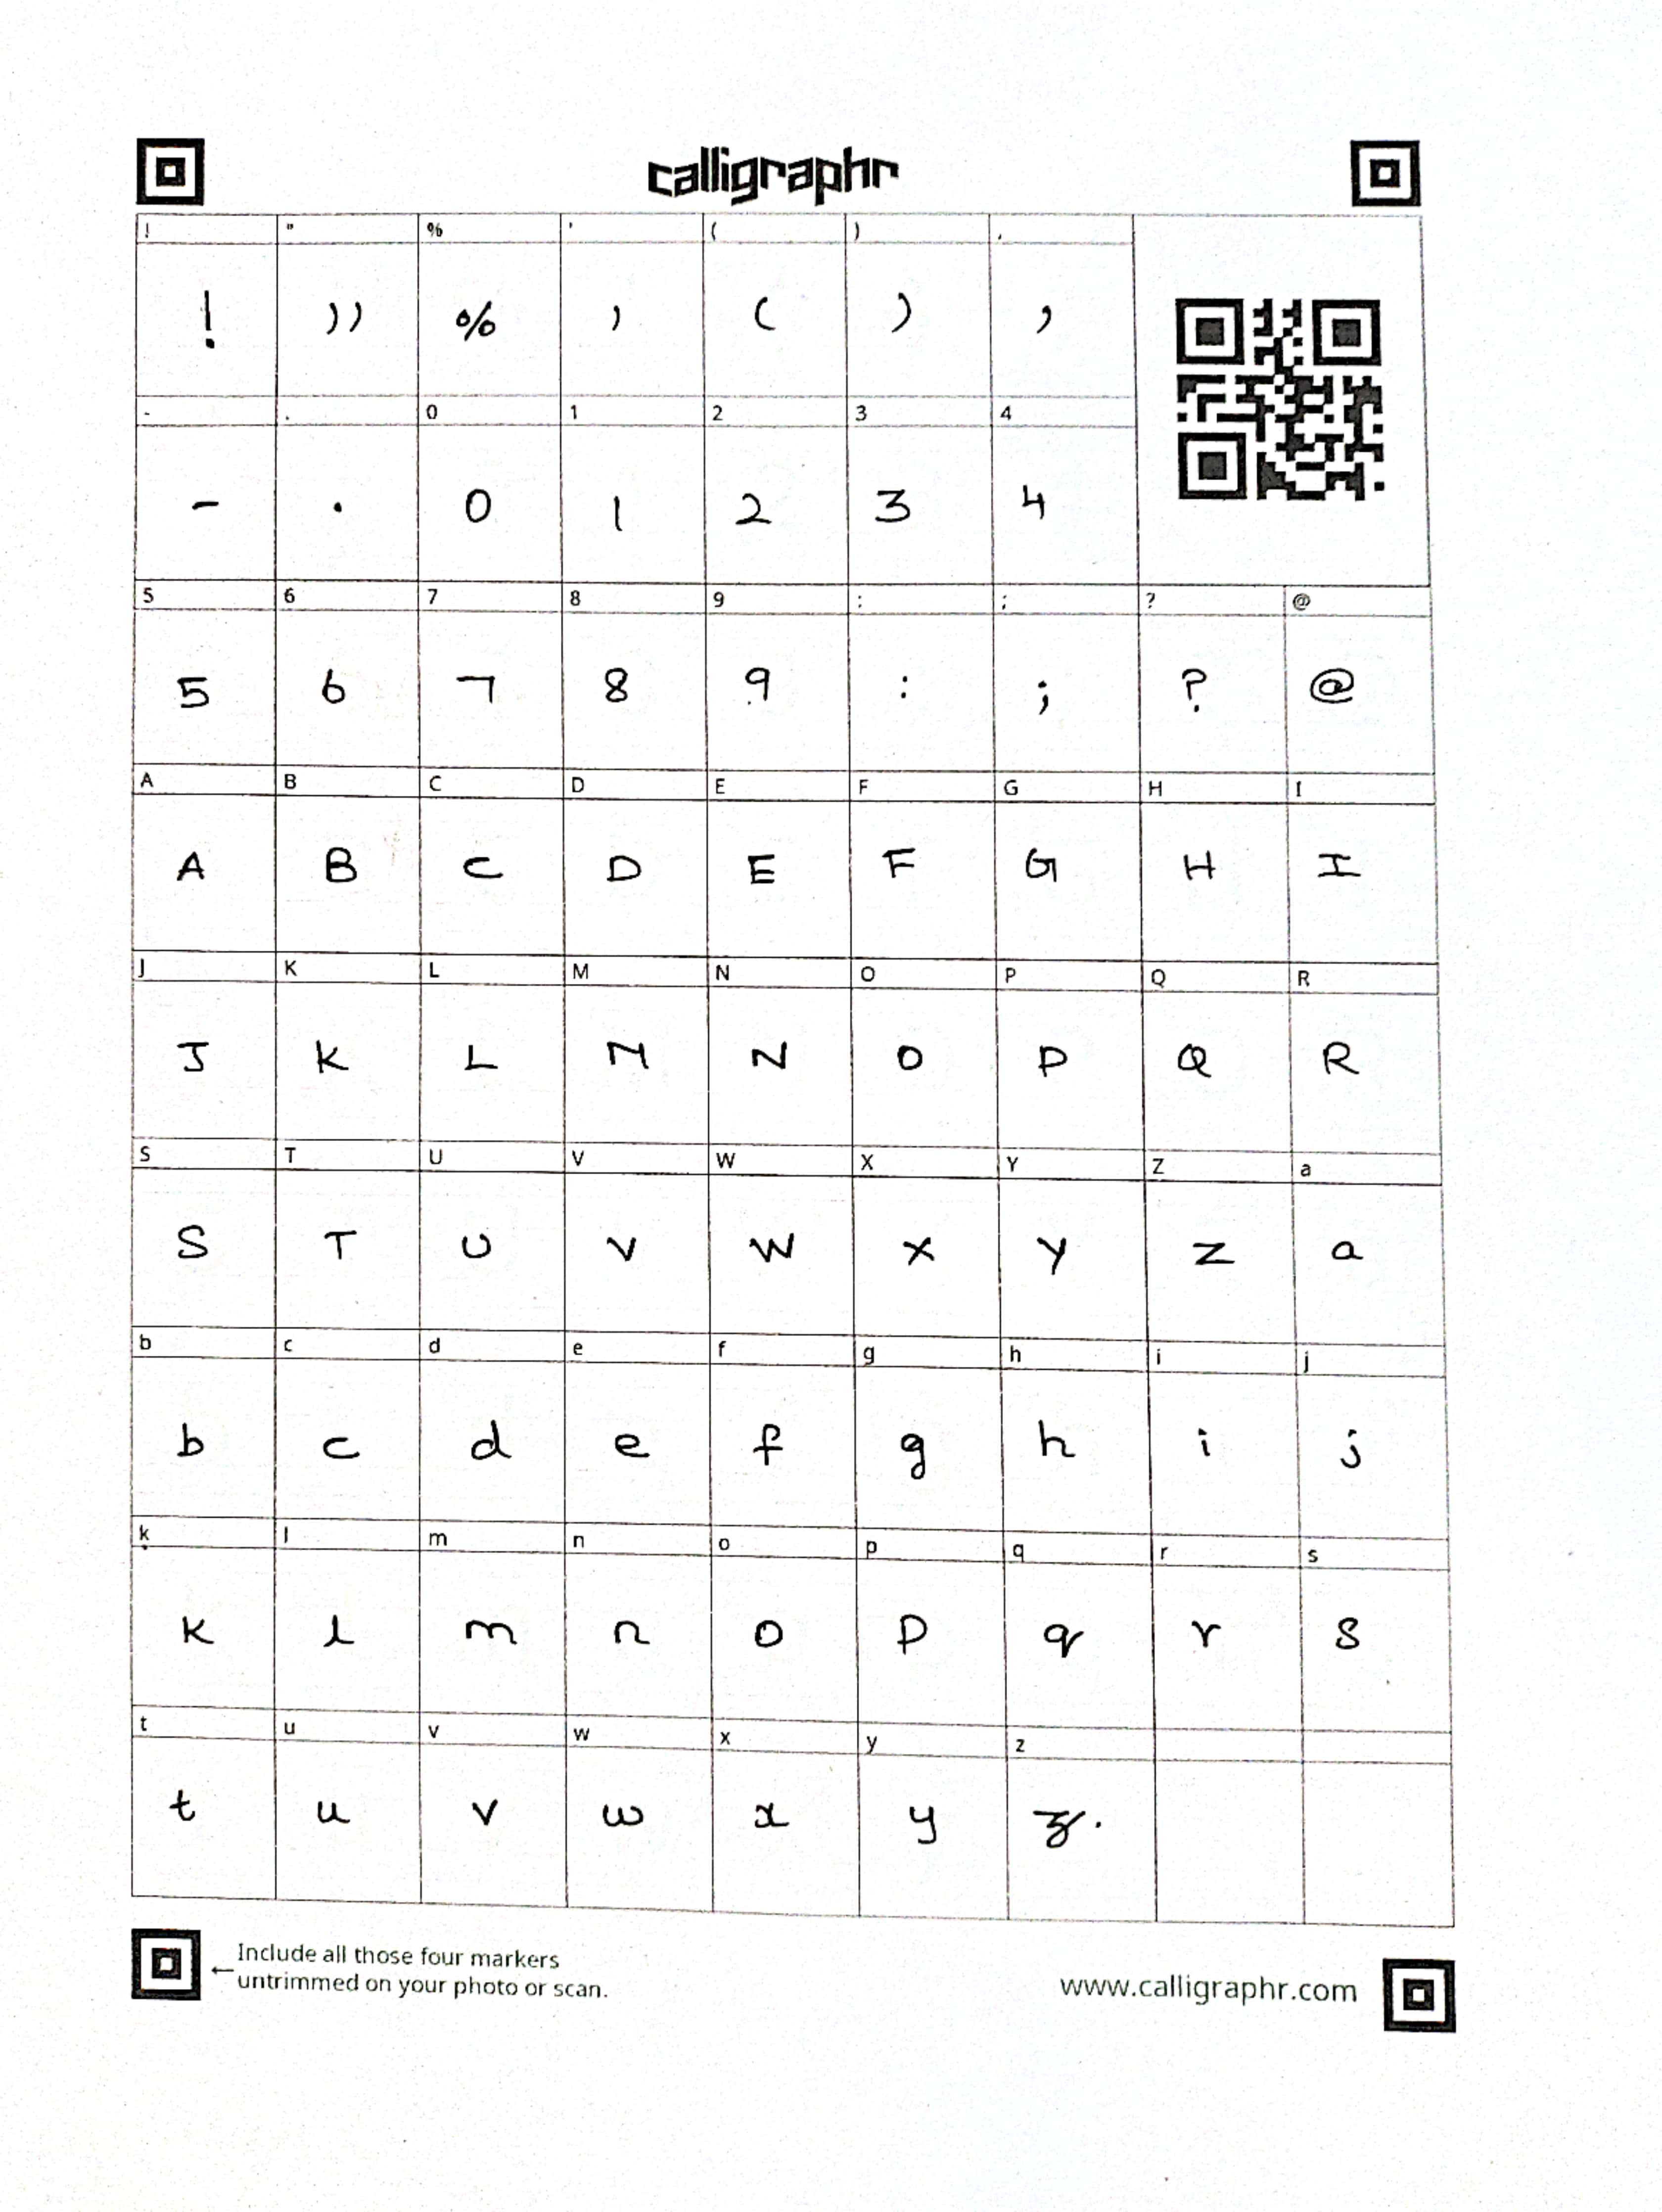 calligraphr
! " % ' ( ) ,
! )) % , ( ) ,
- . 0 1 2 3 4
- . 0 1 2 3 4
5 6 7 8 9 : ; ? @
5 6 7 8 9 : ; ? @
A B C D E F G H I
A B C D E F G H I
J K L M N O P Q R
J K L M N O P Q R
S T U V W X Y Z a
S T U V W X Y Z a
b c d e f g h i j
b c d e f g h i j
k l m n o p q r s
k l m n o p q r s
t u v w x y z
t u v w x y z.
←Include all those four markers
untrimmed on your photo or scan.
www.calligraphr.com